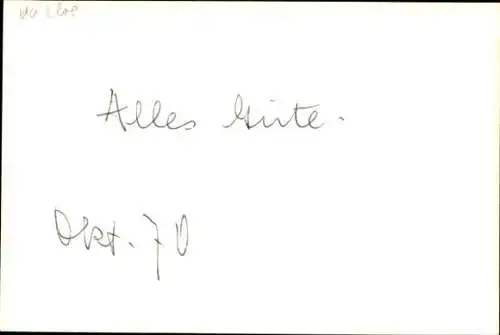 Alles Gute.
Okt. 70